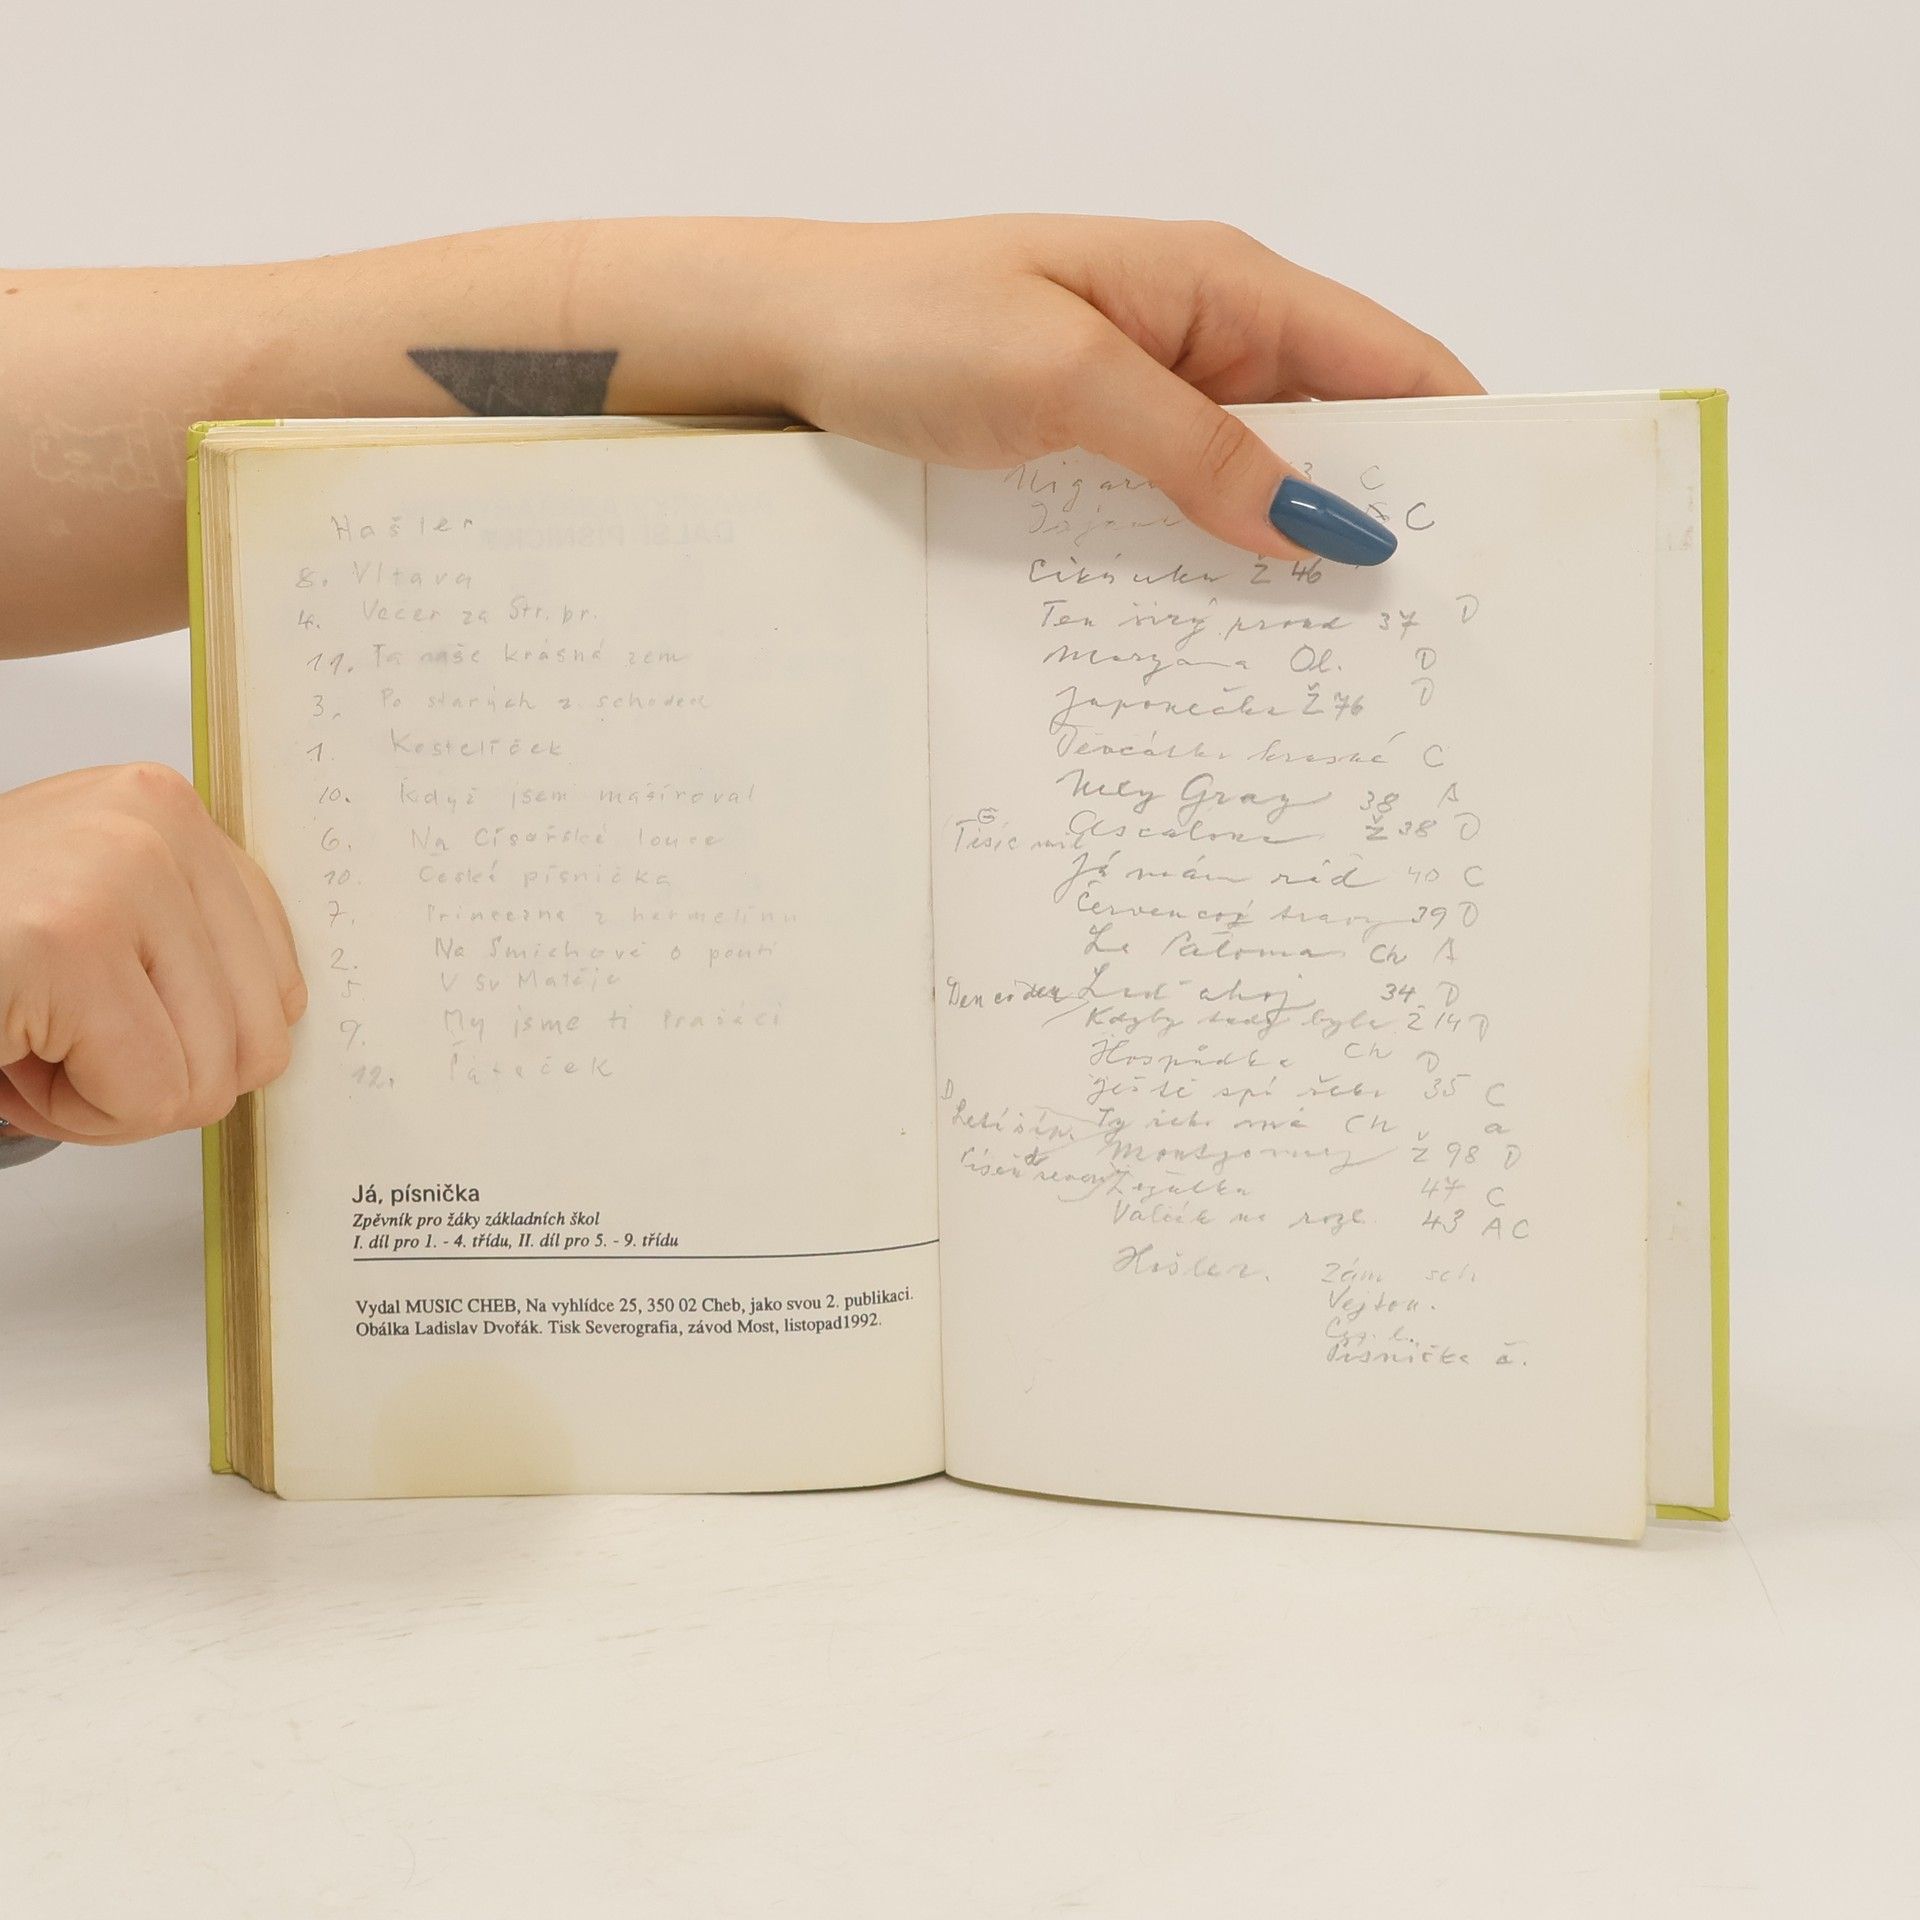 Hašler
8. Vltava
4. Večer za Str. br.
11. Ta naše krásná zem
3. Po starých z. schodech
1. Kostelíček
10. Když jsem mašíroval
6. Na Císařské louce
10. Česká písnička
7. Princezna z hermelínu
2. Na Smíchově o pouti
5. V Sv Matěje
9. My jsme ti Pražáci
12. Páteček
Já, písnička
Zpěvník pro žáky základních škol
I. díl pro 1. - 4. třídu, II. díl pro 5. - 9. třídu
Vydal MUSIC CHEB, Na vyhlídce 25, 350 02 Cheb, jako svou 2. publikaci.
Obálka Ladislav Dvořák. Tisk Severografia, závod Most, listopad1992.
3 C
C
Cikánka Ž 46
Ten širý proud 37 D
Morgana Ol. D
Japonečka Ž 76 D
Děvčátko krásné C
Nely Gray 38 A
G
Tisíc mil Ascalona Ž 38 D
Já mám rád 40 C
Červencoý trávy 39 D
La Paloma Ch A
Den co den Loď ahoj 34 D
Kdyby tady byla Ž 14 D
Hospůdka Ch D
Ještě spí řeka 35 C
D
Letí šíp. Ty seh. má Ch a
Montgomery Ž 98 D
Píseň severu Žízalka 47 C
Valčík na rozl. 43 A C
Hašler. Zám sch
Vejton.
Cís. l.
Písnička č.